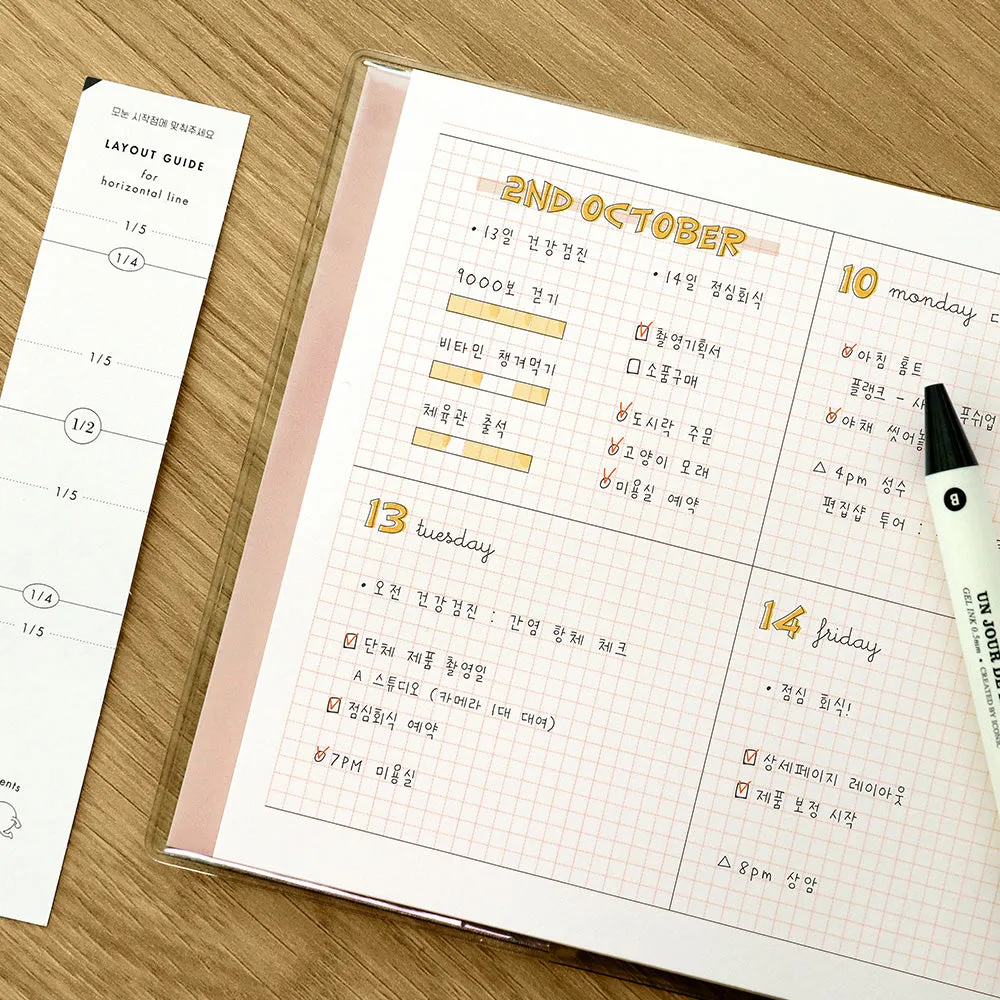 모눈 시작점에 맞춰주세요
LAYOUT GUIDE
for
horizontal line
1/5
1/4
1/5
1/2
1/5
1/4
1/5
2ND OCTOBER
• 13일 건강검진
9000보 걷기
비타민 챙겨먹기
체육관 출석
• 14일 점심회식
촬영기획서
소품구매
도시락 주문
고양이 모래
미용실 예약
10 monday
아침 홈트
플랭크 -
야채
△ 4pm 성수
편집샵 투어 :
13 tuesday
• 오전 건강검진 : 간염 항체 체크
단체 제품 촬영일
A 스튜디오 (카메라 1대 대여)
점심회식 예약
7PM 미용실
14 friday
• 점심 회식!
상세페이지 레이아웃
제품 보정 시작
△ 8pm 상암
B
UN JOUR DE
GEL INK 0.5mm • CREATED BY ICONIC